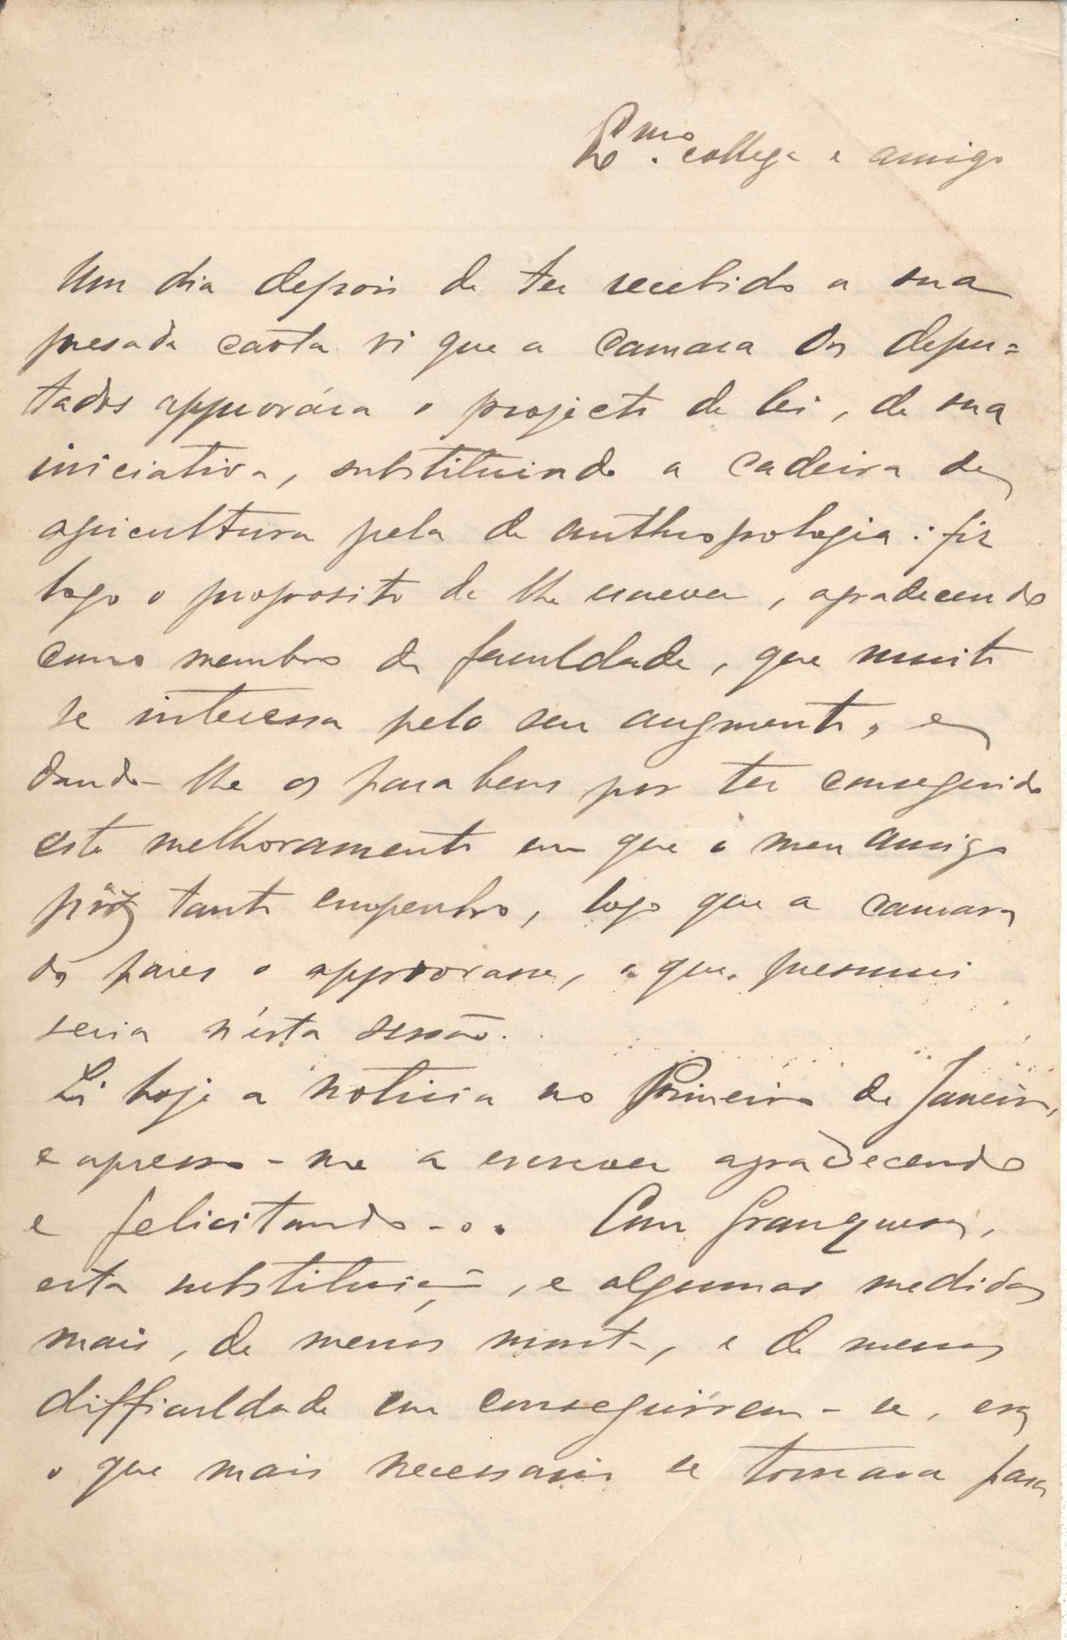 Exmo. collega e amigo
Um dia depois de ter recebido a sua
presada carta vi que a camara dos depu=
tados approvára o projecto de lei, de sua
iniciativa, substituindo a cadeira de
agricultura pela de anthropologia: fiz
logo o proposito de lhe escrever, agradecendo
como membro da faculdade, que muito
se interessa pelo seu augmento, e
dando-lhe os parabens por ter conseguido
este melhoramento em que o meu amigo
poz tanto empenho, logo que a camara
dos pares o approvasse, o que presumi
seria n'esta sessão.
Li hoje a noticia no Primeiro de Janeiro,
e apresso-me a escrever agradecendo
e felicitando-o. Com franquesa,
esta substituição, e algumas medidas
mais, de menos monta, e de menos
difficuldade em conseguirem-se, era
o que mais necessario se tornava para